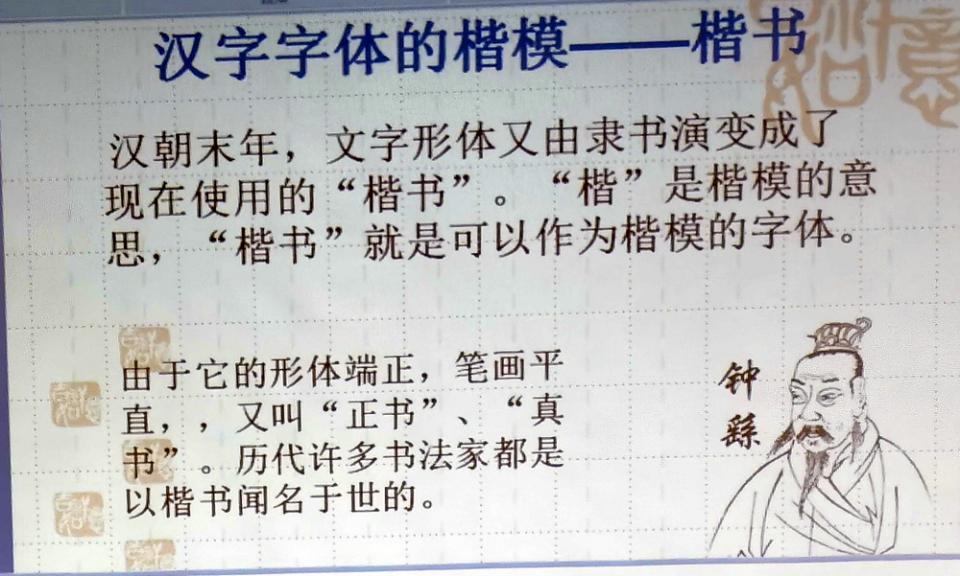 汉字字体的楷模——楷书
汉朝末年，文字形体又由隶书演变成了
现在使用的“楷书”。“楷”是楷模的意
思，“楷书”就是可以作为楷模的字体。
由于它的形体端正，笔画平
直，，又叫“正书”、“真
书”。历代许多书法家都是
以楷书闻名于世的。
钟
繇